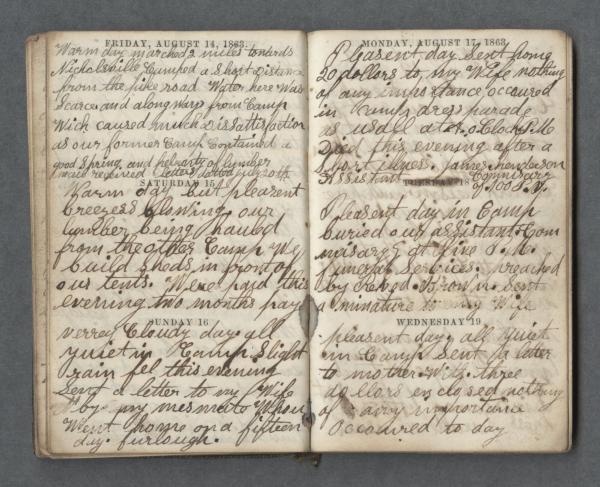 FRIDAY, AUGUST 14, 1863.
Warm day marched 2 miles towards
Nicholsville Camped a Short Distance
from the pike road Water here Was
Scarce and along way from Camp
Wich caused much Dissattisfaction
as our former Camp Contained a
good Spring, and pelenty of lumber
mail received Letters
SATURDAY 15
Warm day but pleasent
breezess blowing our
lumber being hauled
from the other Camp We
build Sheds in front of
our tents. Were payd this
evening two months pay
SUNDAY 16
verrey Cloudy day. all
quiet in Camp. Slight
rain fel this evening
Sent a letter to my Wife
by my mesmate Whou
Went home on a fifteen
day. furlough.
MONDAY, AUGUST 17, 1863.
Pleasent day Sent home
20 dollors to my Wife nothing
of any importance occoured
in camp dress parade
as usuel at 5.oClock P.M
Died this evening after a
Short illness. James henderson
Assistant Commisary
of 100 S. V.
TUESDAY 18
Pleasent day in Camp
buried our assistant Com
misary at five P. M.
funeral Services. preached
by reved. Brown. Sent
a minature to my Wife
WEDNESDAY 19
pleasent day. all quiet
in Camp Sent a letter
to mother. With three
dollors enclosed nothing
of any importance
occoured to day